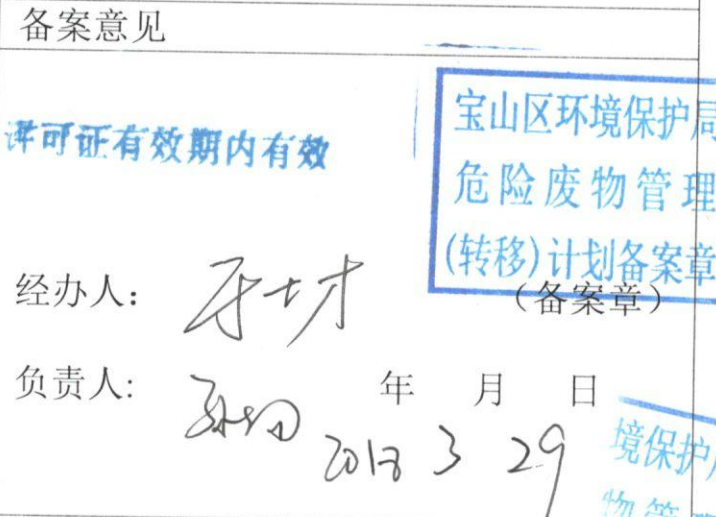 备案意见
许可证有效期内有效
宝山区环境保护局
危险废物管理
(转移)计划备案章
经办人：
（备案章）
负责人:
年 月 日
2018 3 29
境保护
物管理